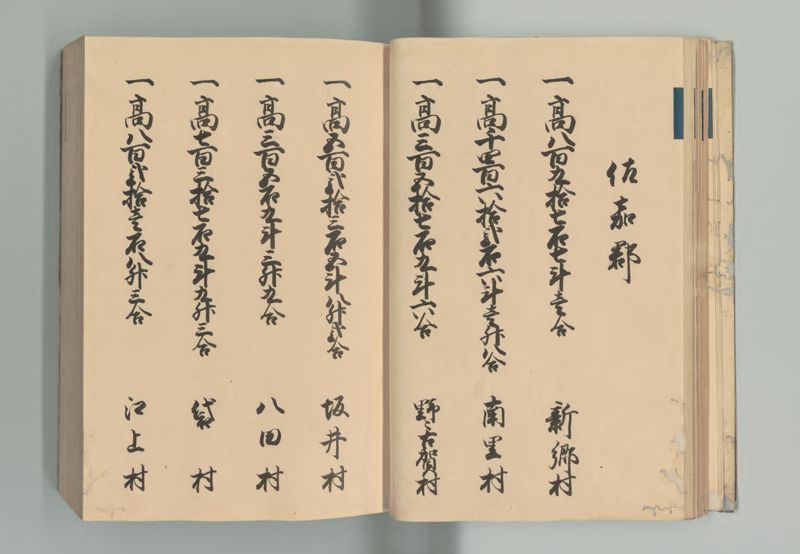 佐嘉郡
一高八百九拾七石七斗壱合 新郷村
一高千四百六拾弐石六斗壱升八合 南里村
一高三百五拾七石九斗六合 野々古賀村
一高五百弐拾二石五斗八升弐合 坂井村
一高三百五石九斗三升九合 八田村
一高七百三拾七石九斗九升三合 袋村
一高八百弐拾壱石八升三合 江上村